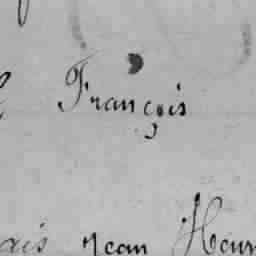 François
ais Jean Henr